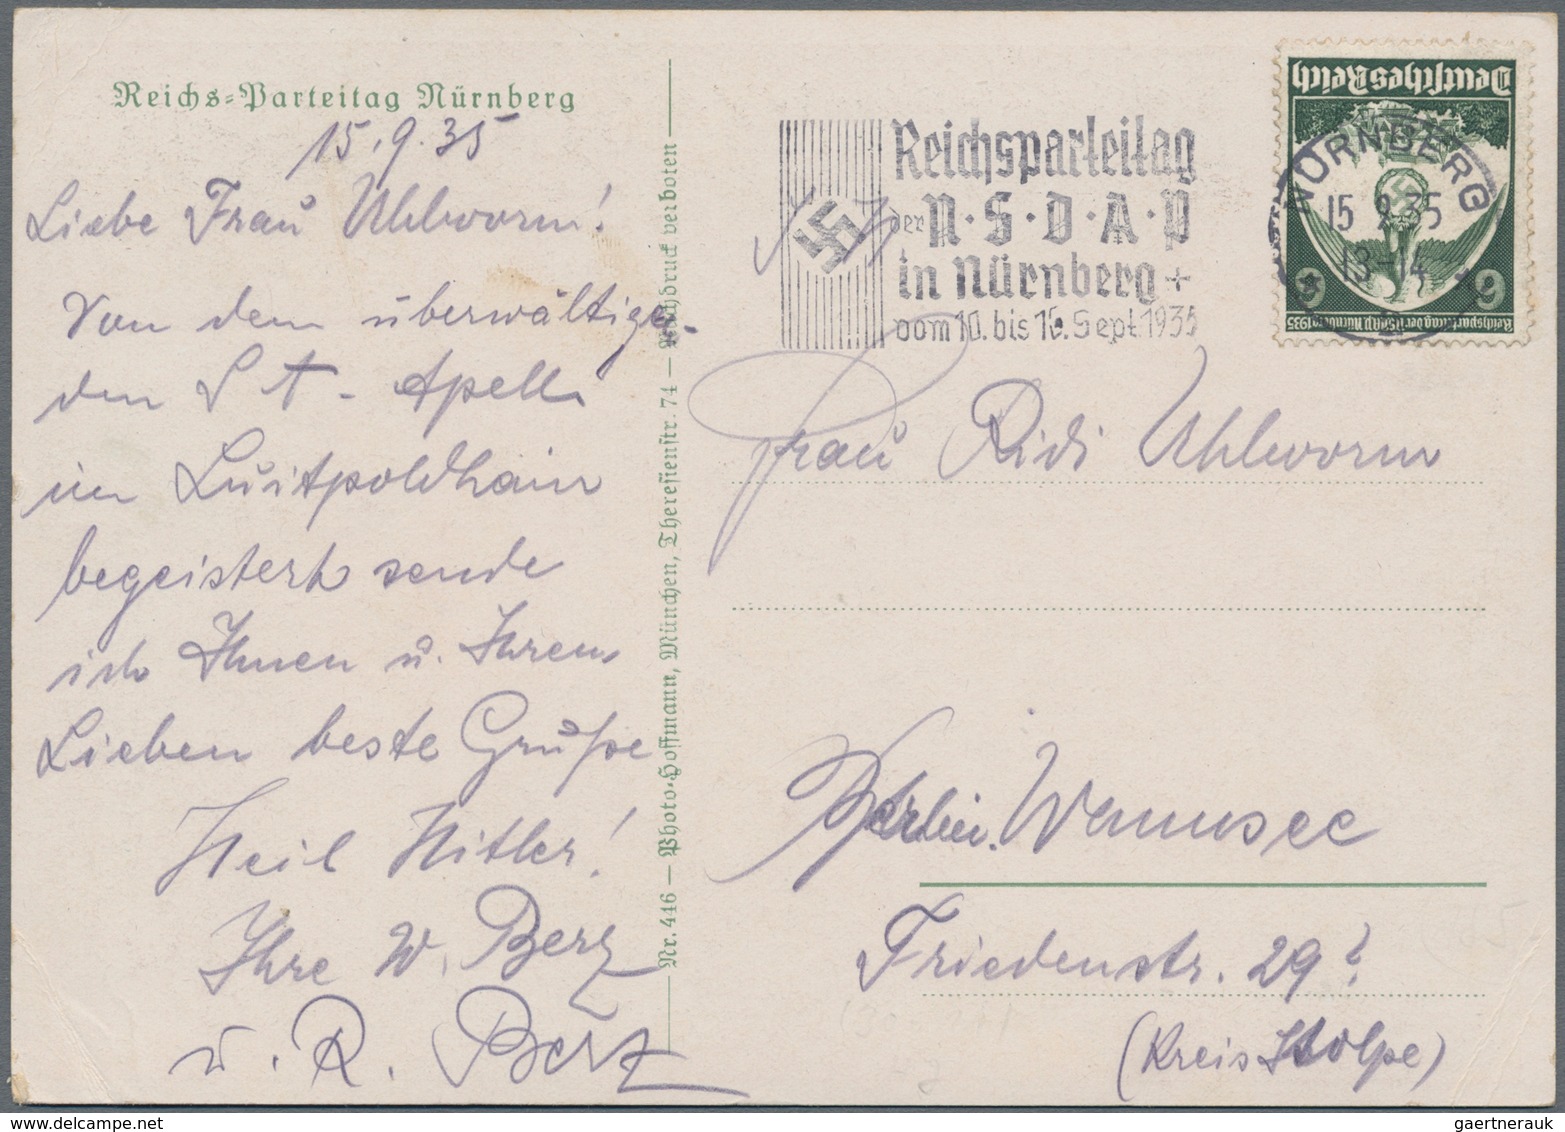 Reichs-Parteitag Nürnberg
15.9.35
Liebe Frau Uhlworm!
Von dem überwältigen-
den S A - Apell
im Luitpoldhain
begeistert sende
ich Ihnen u. Ihren
Lieben beste Grüße
Heil Hitler!
Ihre W. Berz
u. R. Berz
Nr. 446 — Photo-Hoffmann, München, Theresienstr. 74 — Nachdruck verboten
Reichsparteitag
der N·S·D·A·P
in Nürnberg +
vom 10. bis 16. Sept. 1935
Deutsches Reich
NÜRNBERG
15 9.35
13-14
6 6
Reichsparteitag der NSDAP Nürnberg 1935
Frau Ridi Uhlworm
Berlin. Wannsee
Friedenstr. 29
(Kreis Stolpe)
gaertnerauk